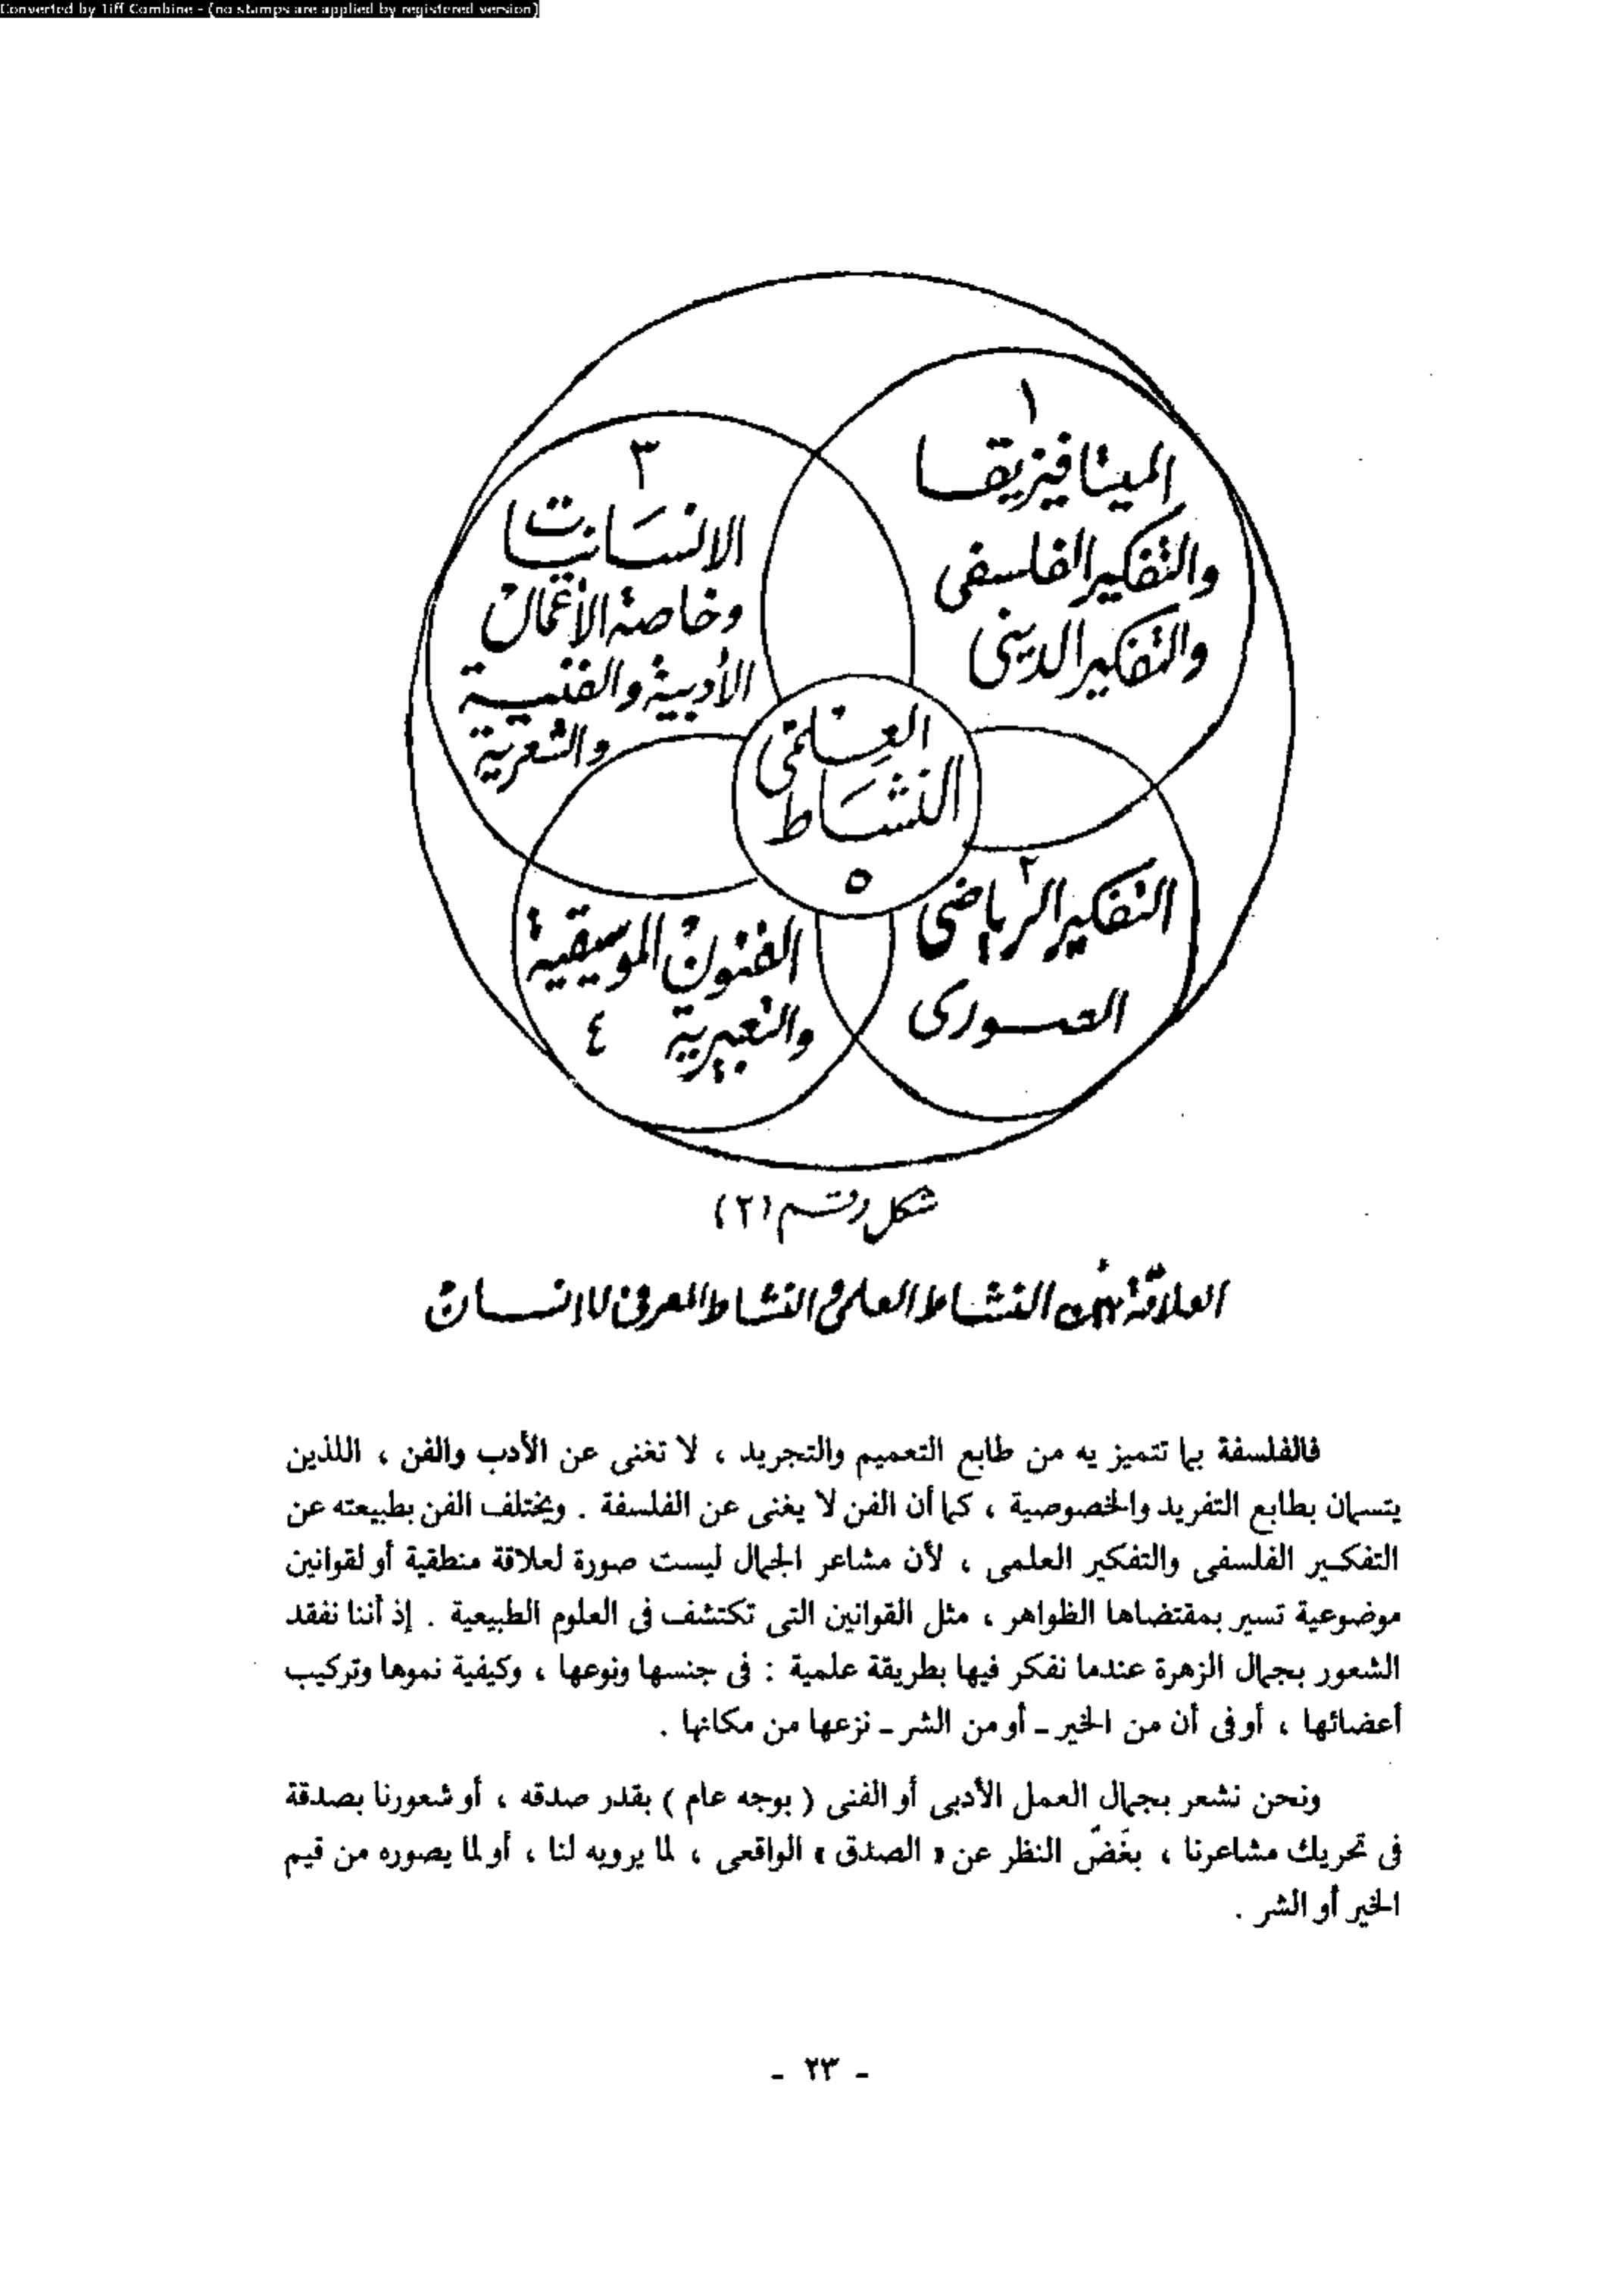 Converted by Tiff Combine - (no stamps are applied by registered version)
١
الميتافيزيقا
والتفكير الفلسفى
والتفكير الدينى
٣
الانسانيات
وخاصة الأعمال
الأدبية والفنية
والشعرية
العلمى
النشاط
٥
٢
التفكير الرياضى
الصورى
الفنون الموسيقية
والتعبيرية ٤
شكل رقم (٢)
العلاقة بين النشاط العلمى والنشاط المعرفى للانسان
فالفلسفة بما تتميز يه من طابع التعميم والتجريد ، لا تغنى عن الأدب والفن ، اللذين
يتسمان بطابع التفريد والخصوصية ، كما أن الفن لا يغنى عن الفلسفة . ويختلف الفن بطبيعته عن
التفكير الفلسفى والتفكير العلمى ، لأن مشاعر الجمال ليست صورة لعلاقة منطقية أو لقوانين
موضوعية تسير بمقتضاها الظواهر ، مثل القوانين التى تكتشف فى العلوم الطبيعية . إذ أننا نفقد
الشعور بجمال الزهرة عندما نفكر فيها بطريقة علمية : فى جنسها ونوعها ، وكيفية نموها وتركيب
أعضائها ، أو فى أن من الخير ـ أو من الشر ـ نزعها من مكانها .
ونحن نشعر بجمال العمل الأدبى أو الفنى ( بوجه عام ) بقدر صدقه ، أو شعورنا بصدقة
فى تحريك مشاعرنا ، بغَضّ النظر عن « الصدق » الواقعى ، لما يرويه لنا ، أو لما يصوره من قيم
الخير أو الشر .
- ٢٣ -